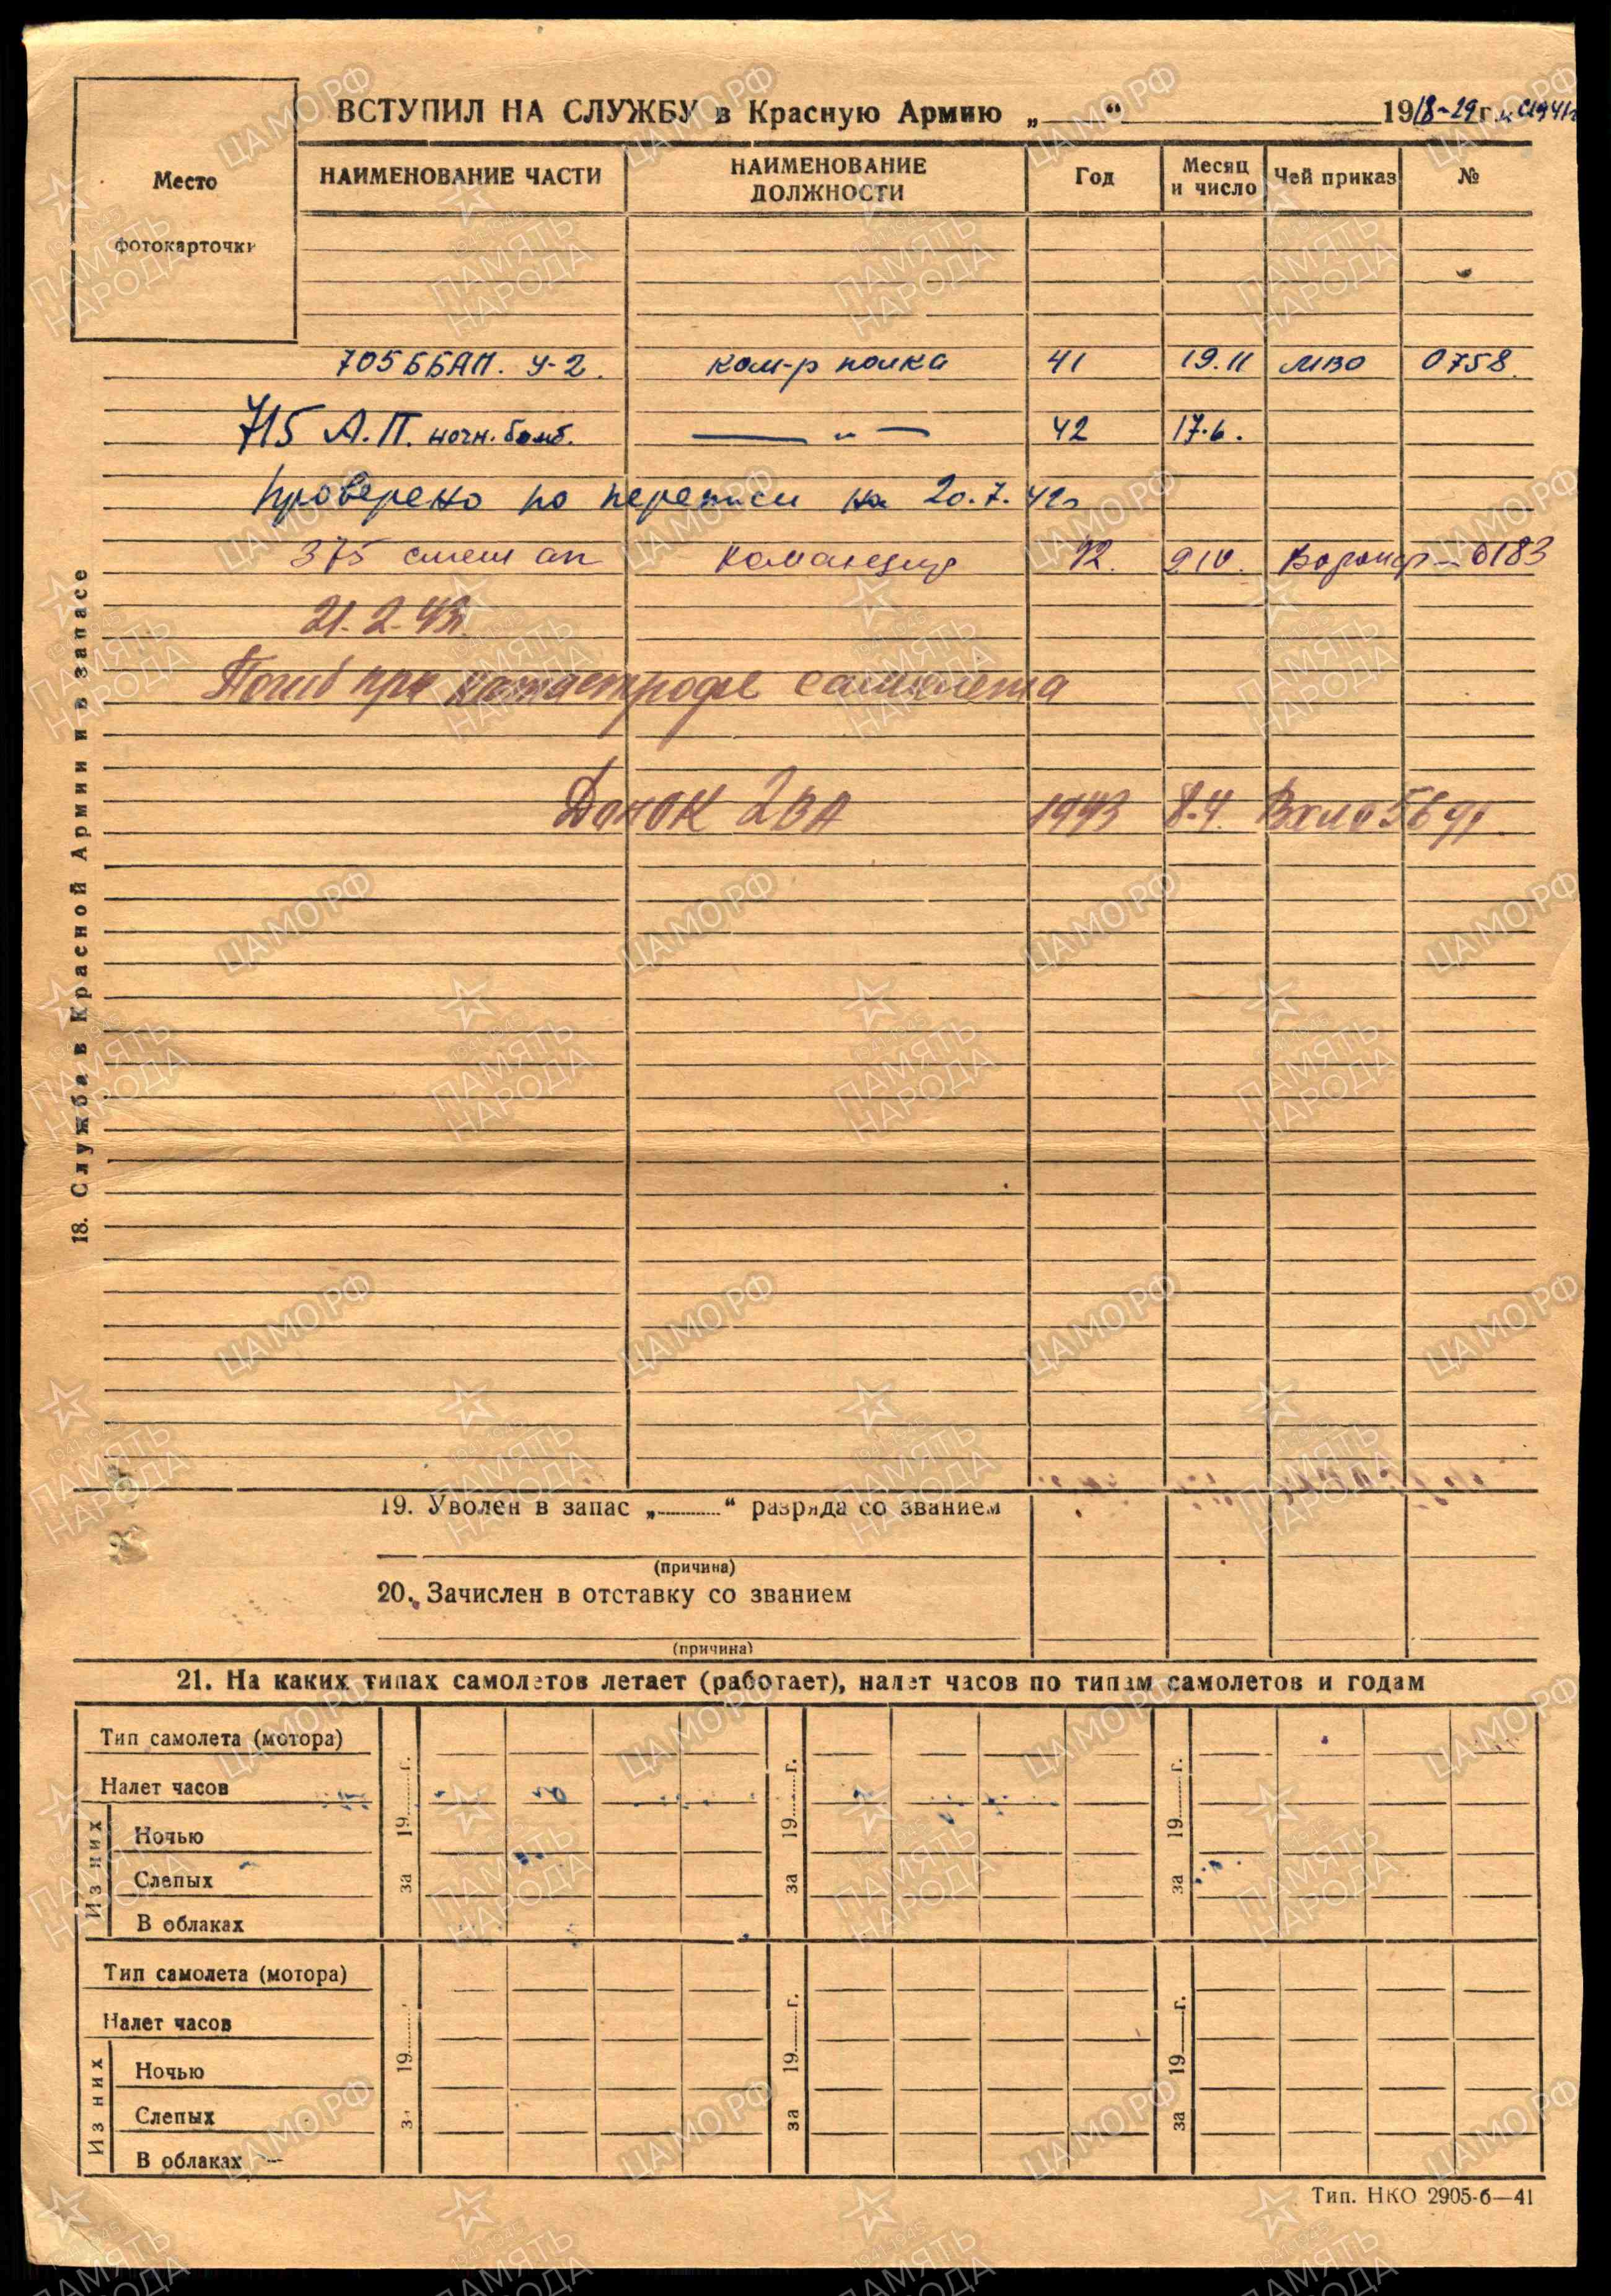 ВСТУПИЛ НА СЛУЖБУ в Красную Армию „ “ 1918-29 г. и с 1941г
Место
фотокарточки
НАИМЕНОВАНИЕ ЧАСТИ НАИМЕНОВАНИЕ ДОЛЖНОСТИ Год Месяц и число Чей приказ №
705 ББАП. У-2. ком-р полка 41 19.11 МВО 0758.
715 А.П. ночн. бомб. — „ — 42 17.6.
Проверено по переписи на 20.7.42г
375 смеш ап командир 42. 0183
21.2.43г.
Погиб при катастрофе самолета
Дон ОК 2ВА 1943 8.4. 5691
18. Служба в Красной Армии и в запасе
19. Уволен в запас „ “ разряда со званием
(причина)
20. Зачислен в отставку со званием
(причина)
21. На каких типах самолетов летает (работает), налет часов по типам самолетов и годам
Тип самолета (мотора)
Налет часов
Из них
Ночью
Слепых
В облаках
за 19 г.
за 19 г.
за 19 г.
Тип самолета (мотора)
Налет часов
Из них
Ночью
Слепых
В облаках
за 19
за 19 г.
за 19 г.
Тип. НКО 2905-б—41
ЦАМО.РФ
1941-1945
ПАМЯТЬ
НАРОДА